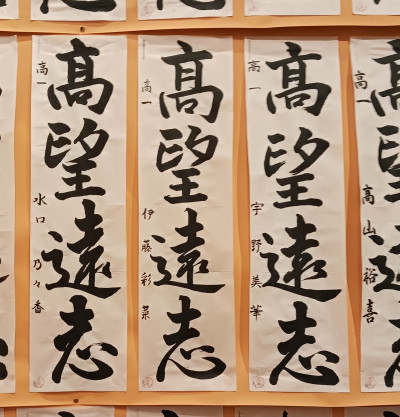 髙望遠志
高一 水口乃々香
髙望遠志
高一 伊藤彩菜
髙望遠志
高一 宇野美華
髙望遠志
高一 高山裕喜